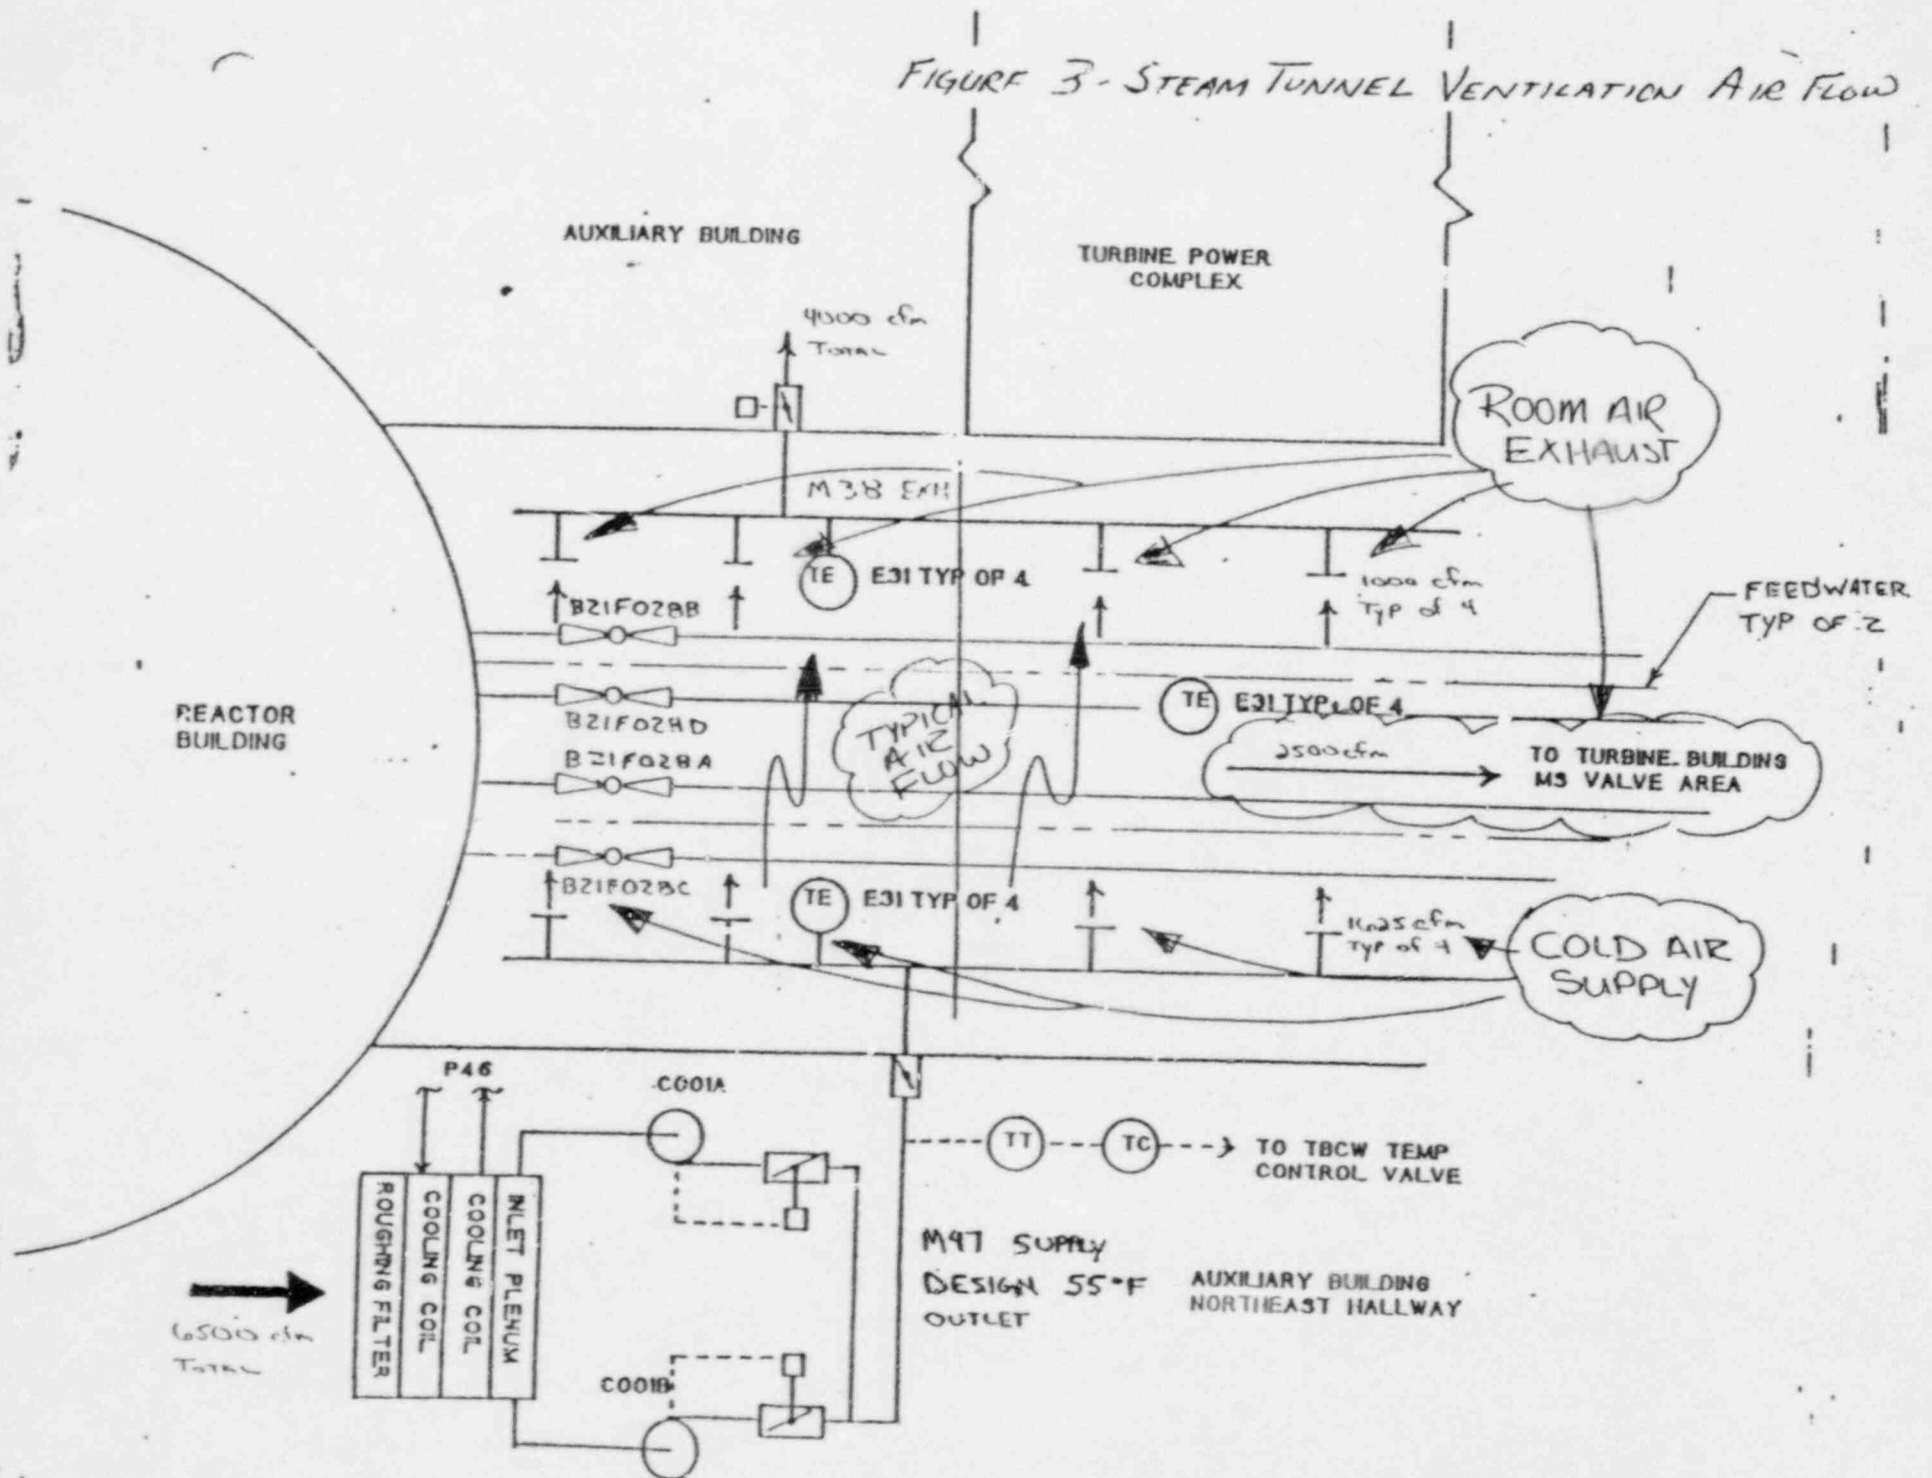 FIGURE 3 - STEAM TUNNEL VENTILATION AIR FLOW
AUXILIARY BUILDING
TURBINE POWER
COMPLEX
4000 cfm
TOTAL
ROOM AIR
EXHAUST
M38 EXH
TE
E31 TYP OF 4
1000 cfm
TYP of 4
FEEDWATER
TYP OF 2
B21F028B
REACTOR
BUILDING
B21F028D
TYPICAL
AIR
FLOW
TE
E31 TYP. OF 4
B21F028A
2500 cfm
TO TURBINE BUILDING
MS VALVE AREA
B21F028C
TE
E31 TYP OF 4
1625 cfm
TYP of 4
COLD AIR
SUPPLY
P46
C001A
TT
TC
TO TBCW TEMP
CONTROL VALVE
ROUGHING FILTER
COOLING COIL
COOLING COIL
INLET PLENUM
M47 SUPPLY
DESIGN 55°F
OUTLET
AUXILIARY BUILDING
NORTHEAST HALLWAY
6500 cfm
TOTAL
C001B